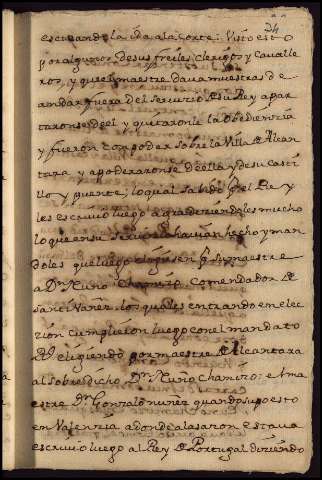 34
escusando la ida a la corte: Visto esto
por algunos de sus freiles clerigos y cavalle
ros, y que el maestre dava muestras de
andar fuera del servicio de su Rey apar
taronse de el y quitaronle la obediencia
y fueron con poder sobre la Villa de Alcan
tara y apoderaronse de ella y de su casti
llo y puente; lo qual sabido por el Rey
les escrivio luego agradeziendoles mucho
lo que en su servicio havian hecho y man
doles que luego eligiesen por su maestre
a Dn. Nuño Chamizo Comendador de
sancti vañez. los quales entrando en elec
zion cumplieron luego con el mandato
eligiendo por maestre de Alcantara
al sobredicho Dn. Nuño Chamizo: el ma
estre Dn. Gonzalo nuñez quando supo esto
en Valenzia adonde a la sazon estava
escrivio luego al Rey de Portugal diziendo